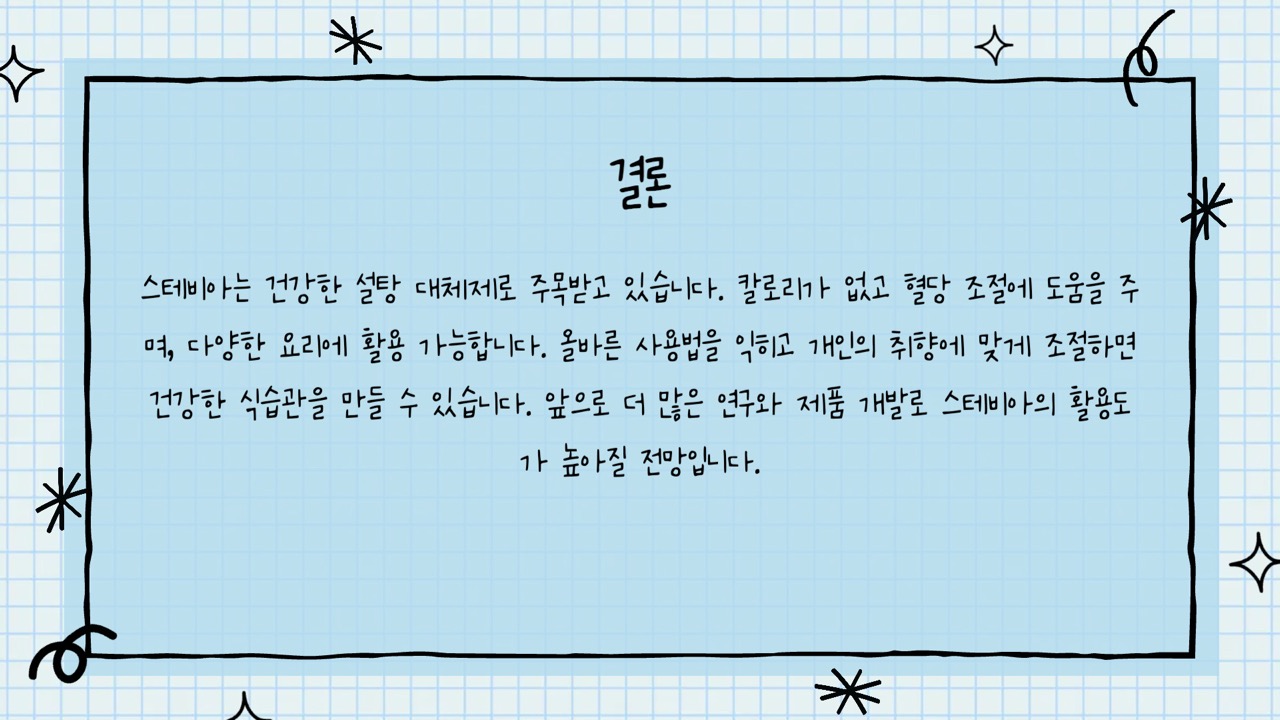 결론
스테비아는 건강한 설탕 대체제로 주목받고 있습니다. 칼로리가 없고 혈당 조절에 도움을 주
며, 다양한 요리에 활용 가능합니다. 올바른 사용법을 익히고 개인의 취향에 맞게 조절하면
건강한 식습관을 만들 수 있습니다. 앞으로 더 많은 연구와 제품 개발로 스테비아의 활용도
가 높아질 전망입니다.